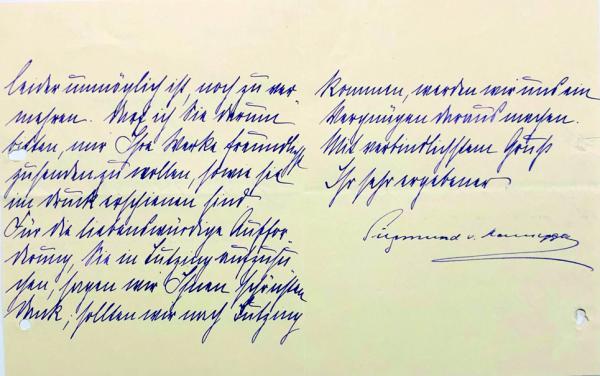 leider unmöglich ist, noch zu ver-
mehren. Darf ich Sie darum
bitten, mir Ihre Werke freundlichst
zusenden zu wollen, sowie sie
im Druck erschienen sind.
Für die liebenswürdige Auffor-
derung, Sie in Tutzing aufzusu-
chen, sagen wir Ihnen schönsten
Dank; sollten wir nach Tutzing
kommen, werden wir uns ein
Vergnügen daraus machen.
Mit verbindlichstem Gruß
Ihr sehr ergebener
Siegmund v.